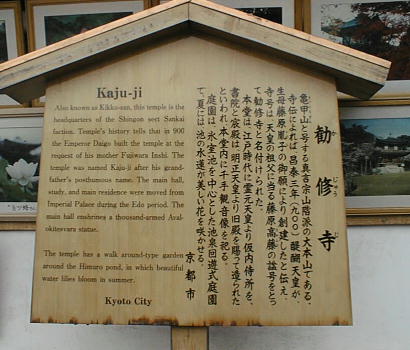 Kaju-ji
Also known as Kikko-zan, this temple is the
headquarters of the Shingon sect Sankai
faction. Temple's history tells that in 900
the Emperor Daigo built the temple at the
request of his mother Fujiwara Inshi. The
temple was named Kaju-ji after his grand-
father's posthumous name. The main hall,
study, and main residence were moved from
Imperial Palace during the Edo period. The
main hall enshrines a thousand-armed Aval-
okitesvara statue.
The temple has a walk around-type garden
around the Himuro pond, in which beautiful
water lilies bloom in summer.
Kyoto City
勧修寺
かじゅうじ
亀甲山と号する真言宗山階派の大本山である。
寺伝によれば、昌泰三年(九〇〇)醍醐天皇が
生母藤原胤子の御願により創建したと伝え、
寺号は天皇の祖父に当る藤原高藤の諡号をとっ
て勧修寺と名付けられた。
本堂は、江戸時代に霊元天皇より仮内侍所を、
書院と宸殿は、明正天皇より旧殿を賜って造られた
といわれ、本堂内に千手観音像を祀る。
庭園は、氷室池を中心とした池泉回遊式庭園
で、夏には池の水蓮が美しい花を咲かせる。
京都市